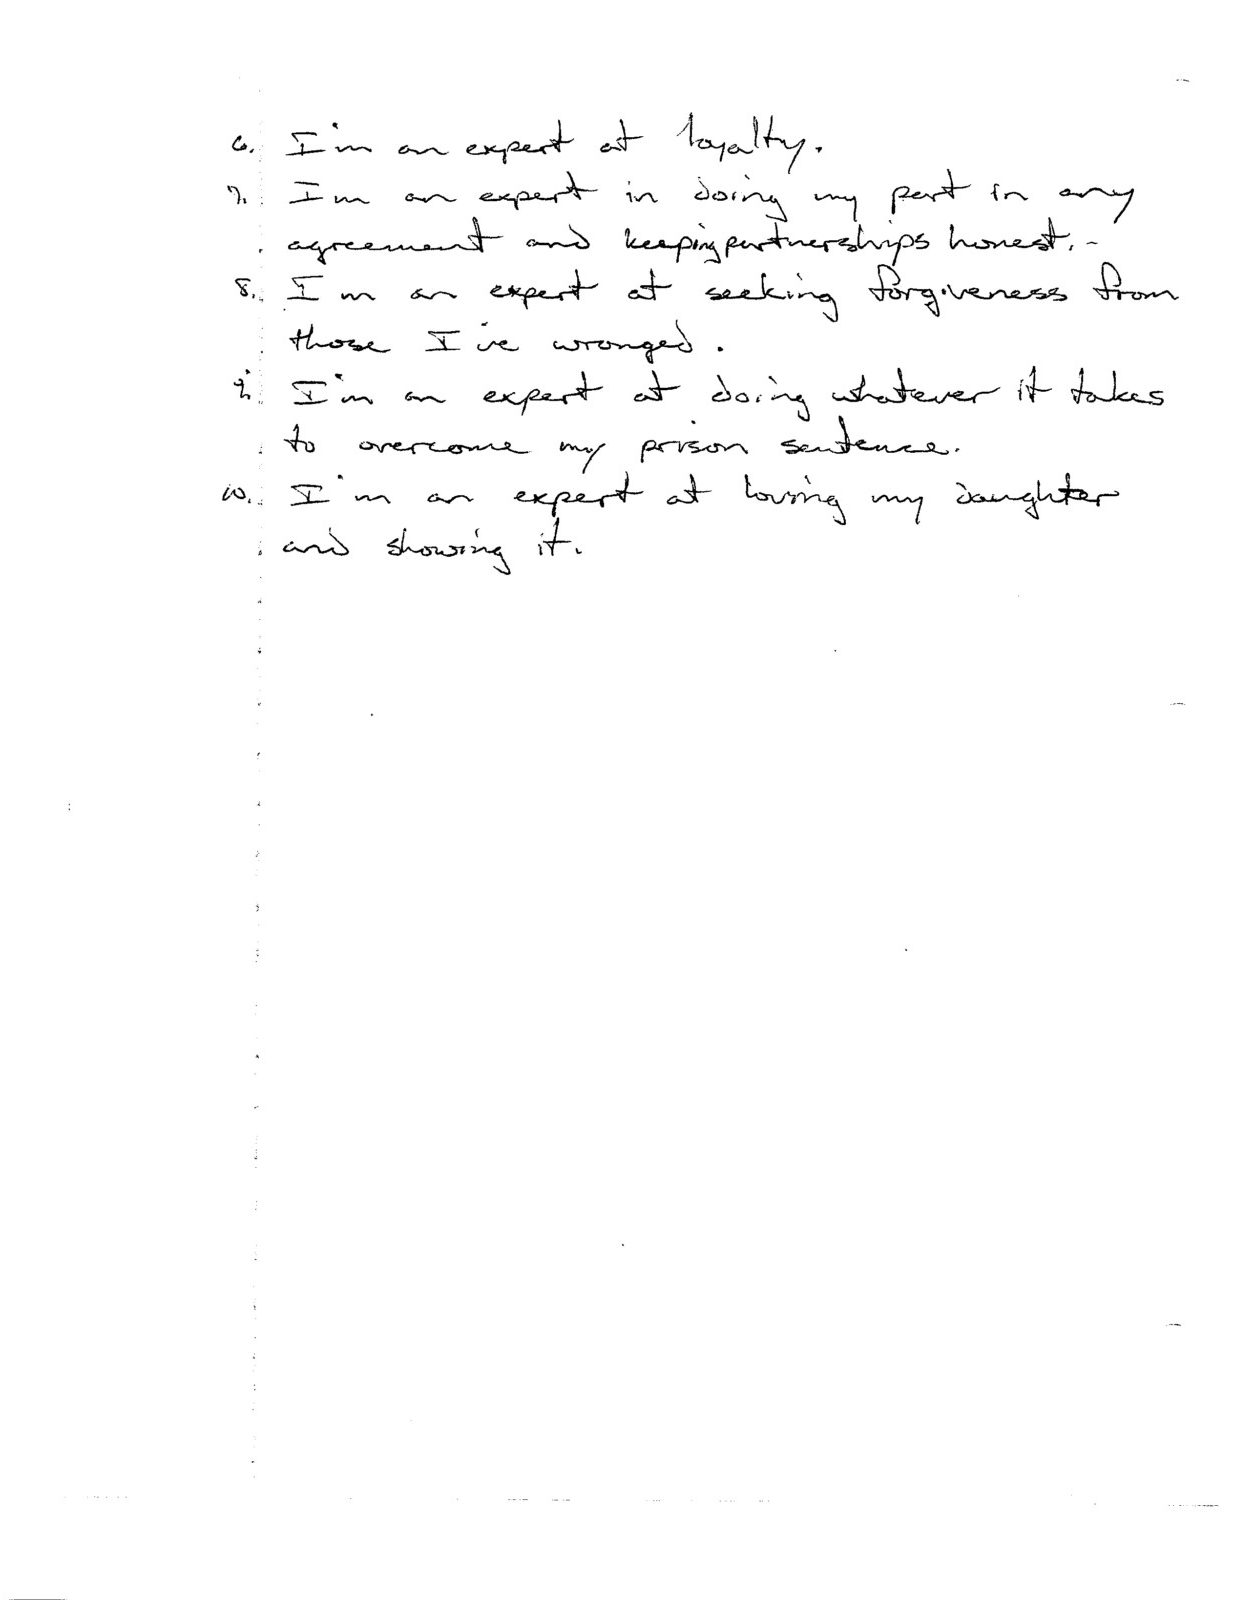 6. I'm an expert at loyalty.
7. I'm an expert in doing my part in any
agreement and keeping partnerships honest. -
8. I'm an expert at seeking forgiveness from
those I've wronged.
9. I'm an expert at doing whatever it takes
to overcome my prison sentence.
10. I'm an expert at loving my daughter
and showing it.